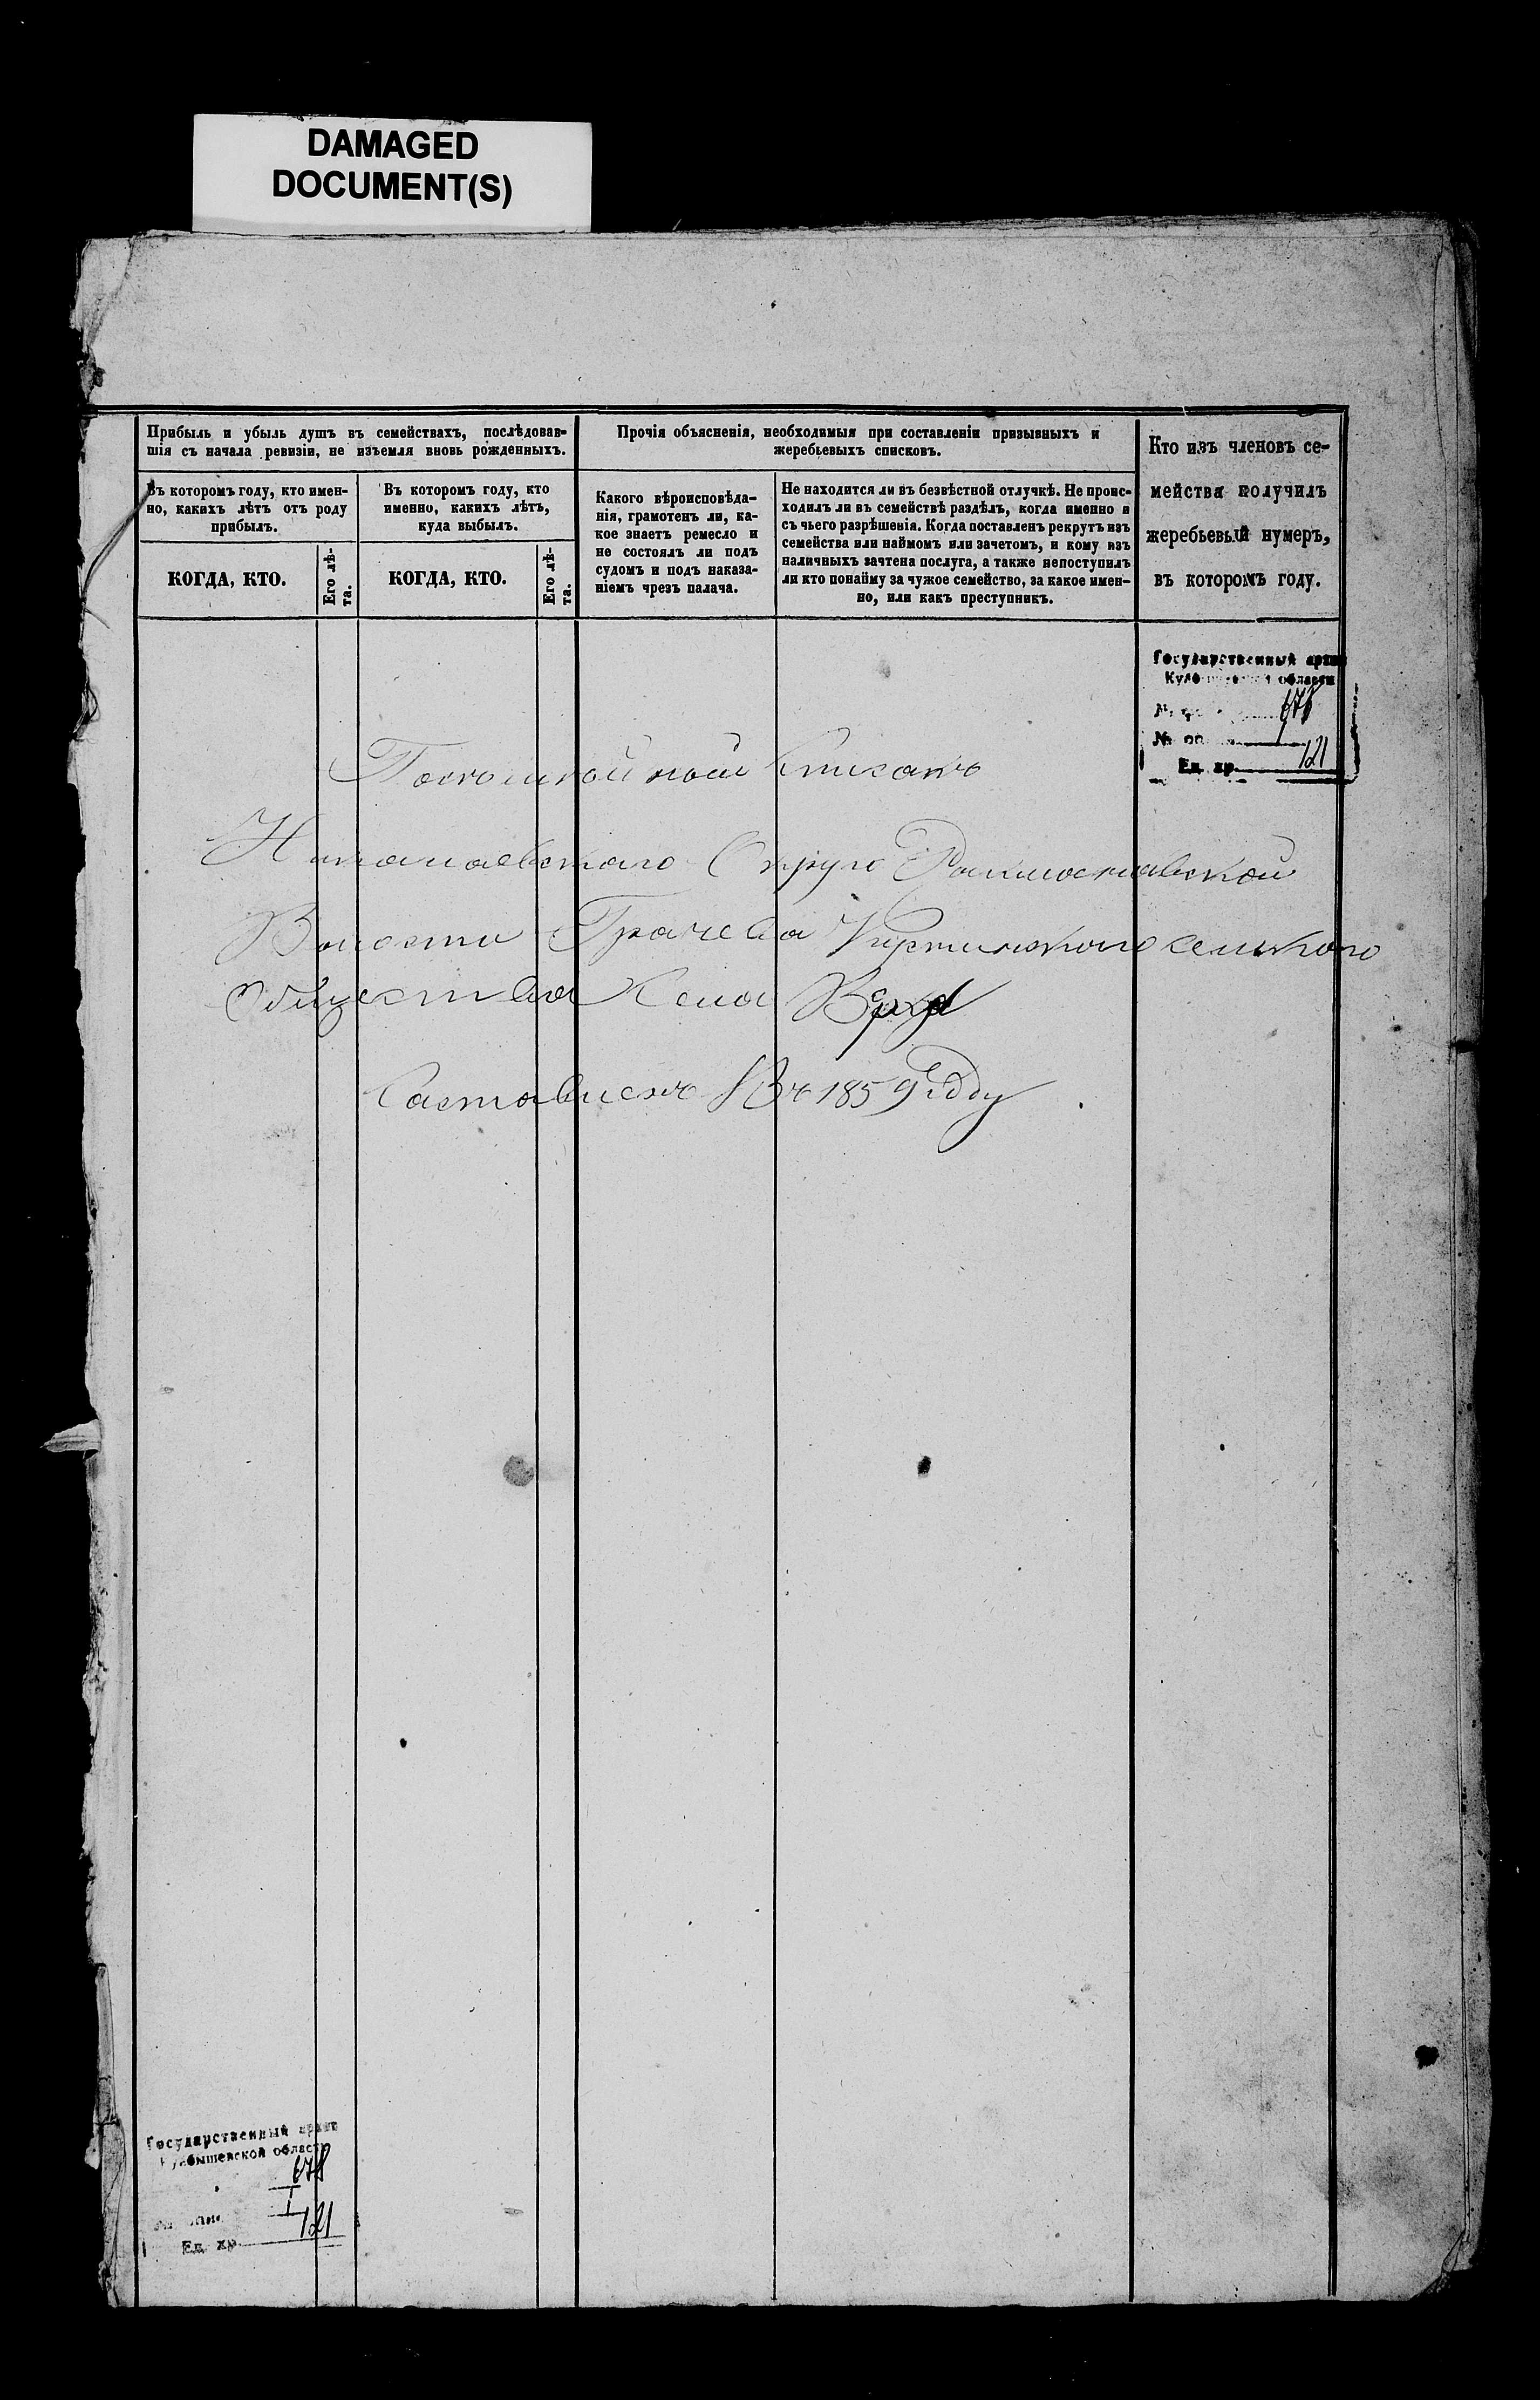 DAMAGED
DOCUMENT(S)
Прибыль и убыль душъ въ семействахъ, послѣдовав-
шія съ начала ревизіи, не изъемля вновь рожденныхъ.
Въ которомъ году, кто имен-
но, какихъ лѣтъ отъ роду
прибылъ.
КОГДА, КТО.
Его лѣ-
та.
Въ которомъ году, кто
именно, какихъ лѣтъ,
куда выбылъ.
КОГДА, КТО.
Его лѣ-
та.
Прочія объясненія, необходимыя при составленіи призывныхъ и
жеребьевыхъ списковъ.
Какого вѣроисповѣда-
нія, грамотенъ ли, ка-
кое знаетъ ремесло и
не состоялъ ли подъ
судомъ и подъ наказа-
ніемъ чрезъ палача.
Не находится ли въ безвѣстной отлучкѣ. Не проис-
ходилъ ли въ семействѣ раздѣлъ, когда именно и
съ чьего разрѣшенія. Когда поставленъ рекрутъ изъ
семейства или наймомъ или зачетомъ, и кому изъ
наличныхъ зачтена послуга, а также непоступилъ
ли кто понайму за чужое семейство, за какое имен-
но, или какъ преступникъ.
Кто изъ членовъ се-
мейства получилъ
жеребьевый нумеръ,
въ которомъ году.
Государственный архив
Куйбышевской области
678
1
Ед. хр. 121
Списокъ
Николаевскаго Округа
Волости Грачева сельского
Общества Села
Саставленъ Въ 1859 году
Государственный архив
Куйбышевской области
678
1
Ед. хр. 121